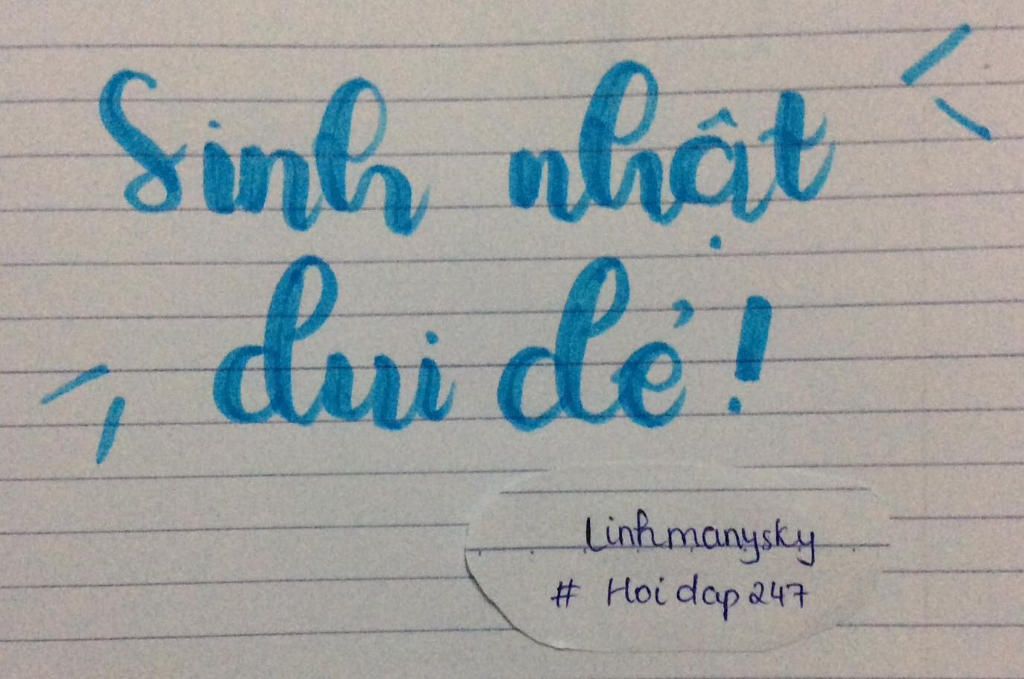 Sinh nhật
dui dẻ!
Linhmanysky
# Hoidap247